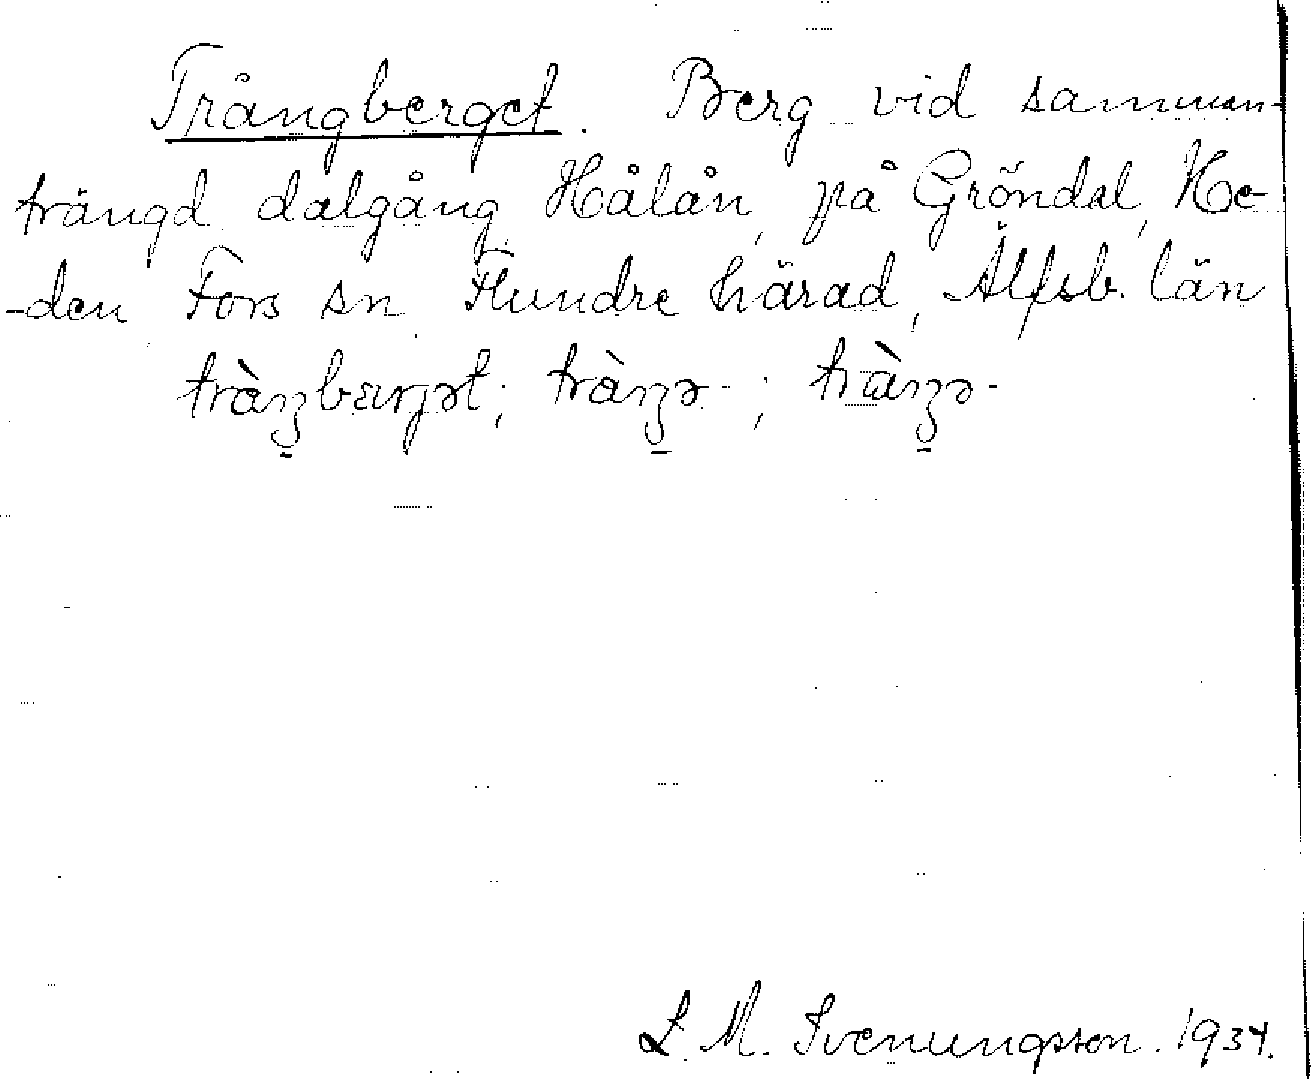 Trångberget. Berg vid samman-
trängd dalgång Hålån, på Gröndal, He-
-den Fors sn Flundre härad, Älfsb. län
tràŋbærjət; tràŋə-; tràŋə-
L. M. Svenungsson. 1934.